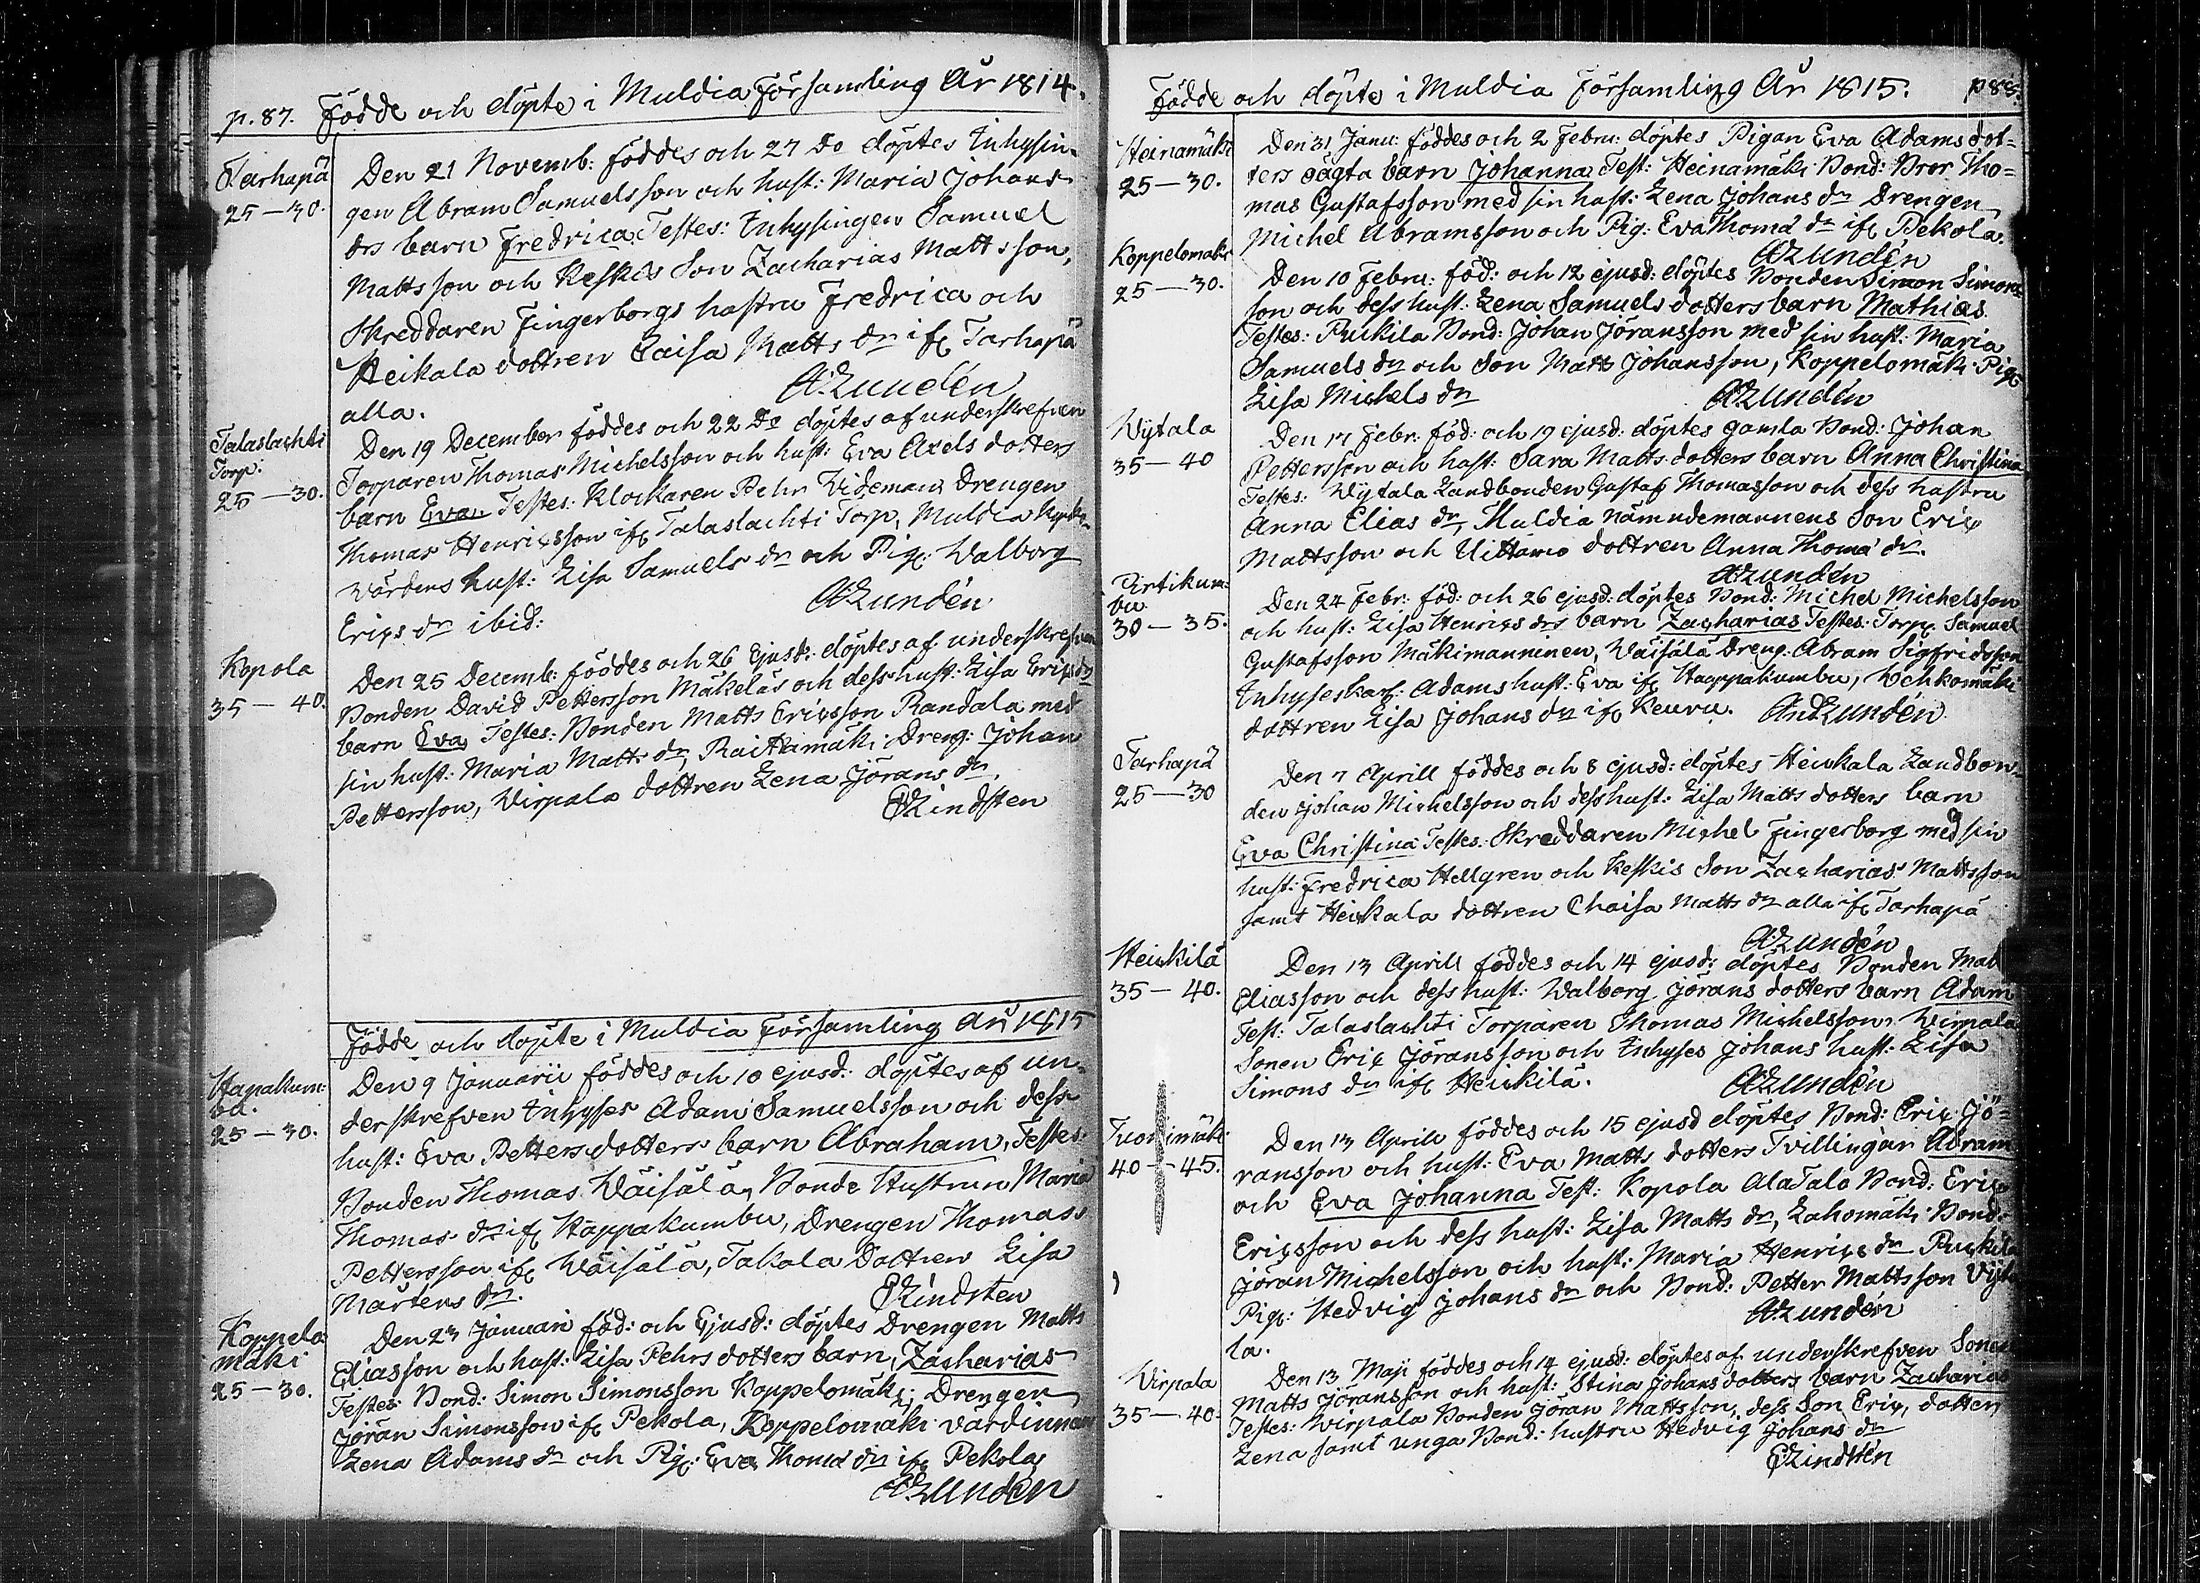 p. 87. Födde och döpte i Muldia Församling År 1814.
Tarhapä
25–30.
Den 21 Novemb: föddes och 27 Do döptes Inhysin-
gen Abram Samuelsson och hust: Maria Johans
drs barn Fredrica. Testes: Inhysingen Samuel
Mattsson och Keskis Son Zacharias Mattsson,
Skreddaren Fingerborgs hustru Fredrica och
Heikala dottren Caisa Matts dr if Tarhapä
alla. A:Lundén
Talaslachti
Torp:
25–30.
Den 19 December föddes och 22 Do döptes af underskrefven
Torparen Thomas Michelsson och hust: Eva Axels dotters
barn Eva. Testes: Klockaren Pehr Videman, Drengen
Thomas Henricsson if Talaslachti Torp, Muldia
värdens hust: Lisa Samuels dr och Pig: Walborg
Erics dr ibid: A:Lundén
Kopola
35–40.
Den 25 Decemb: föddes och 26 Ejusd: döptes af underskrefven
Bonden David Pettersson Mäkeläs och dess hust: Lisa Erics drs
barn Eva, Testes: Bonden Matts Ericsson Randala med
sin hust: Maria Matts dr, Raittamäki Dreng: Johan
Pettersson, Virpala dottren Lena Jörans dr.
E:Lindsten
Födde och döpte i Muldia Församling År 1815
Hapakum-
bu.
25–30.
Den 9 Januarii föddes och 10 ejusd: döptes af un-
derskrefven Inhyses Adam Samuelsson och dess
hust: Eva Petters dotters barn Abraham, Testes:
Bonden Thomas Wäisälä, Bonde Hustrun Maria
Thomas dr if Happakumbu, Drengen Thomas
Pettersson if Wäisälä, Takala Dottren Lisa
Mårtens dr. E:Lindsten
Koppelo-
mäki
25–30.
Den 23 Januari föd: och Ejusd: döptes Drengen Matts
Eliasson och hust: Lisa Pehrs dotters barn, Zacharias
Testes: Bond: Simon Simonsson Koppelomäki, Drengen
Jöran Simonsson if Pekola, Koppelomäki värdinnan
Lena Adams dr och Pig: Eva Thoma dr if Pekola,
A:Lundén
Födde och döpte i Muldia Församling År 1815. p 88.
Heinamäki
25–30.
Den 31 Janu: föddes och 2 Febru: döptes Pigan Eva Adams dot-
ters oägta barn Johanna Test: Heinamäki Bond: Bror Tho-
mas Gustafsson med sin hust: Lena Johans dr Drengen
Michel Abramsson och Pig: Eva Thoma dr if Pekola.
A:Lundén
Koppelomäki
25–30.
Den 10 Febru: föd: och 12 ejusd: döptes Bonden Simon Simons
son och dess hust: Lena Samuels dotters barn Mathias.
Testes: Puckila Bond: Johan Jöransson med sin hust: Maria
Samuels dr och Son Matts Johansson, Koppelomäki Pig:
Lisa Michels dr A:Lundén
Wytala
35–40
Den 17 Febr: föd: och 19 ejusd: döptes gamla Bond: Johan
Pettersson och hust: Sara Matts dotters barn Anna Christina
Testes: Wytala Landbonden Gustaf Thomasson och dess hustru
Anna Elias dr, Muldia nämndemannens Son Eric
Mattsson och Uittamo dottren Anna Thoma dr.
A:Lundén
Pirtikum-
bu
30–35.
Den 24 Febr: föd: och 26 ejusd: döptes Bond: Michel Michelsson
och hust: Lisa Henrics drs barn Zacharias Testes: Torp: Samuel
Gustafsson Mäkimanninen, Wäisälä Dreng: Abram Sigfridsson
Inhyseskarl: Adams hust: Eva if Happakumbu, Wehkomäki
dottren Lisa Johans dr if Keuru. An:Lundén
Tarhapä
25–30
Den 7 Aprill föddes och 8 ejusd: döptes Heickala Landbon-
den Johan Michelsson och dess hust: Lisa Matts dotters barn
Eva Christina Testes: Skreddaren Michel Fingerborg med sin
hust: Fredrica Hellgren och Keskis Son Zacharias Mattsson
samt Heickala dottren Chaisa Matts dr alla if Tarhapä
A:Lundén
Heickilä
35–40.
Den 13 Aprill föddes och 14 ejusd: döptes Bonden Matts
Eliasson och dess hust: Walborg Jörans dotters barn Adam
Test: Talaslachti Torparen Thomas Michelsson, Wirpala
Sonen Eric Jöransson och Inhyses Johans hust: Lisa
Simons dr if Heickilä. A:Lundén
Tuomimäki
40–45.
Den 13 Aprill föddes och 15 ejusd döptes Bond: Eric Jö-
ransson och hust: Eva Matts dotters Tvillingar Abram
och Eva Johanna Test: Kopola AlaTalo Bond: Eric
Ericsson och dess hust: Lisa Matts dr, Lahomäki Bond:
Jöran Michelsson och hust: Maria Henrics dr Puckila
Pig: Hedvig Johans dr och Bond: Petter Mattsson Vyta
la. A:Lundén
Virpala
35–40.
Den 13 Maji föddes och 14 ejusd: döptes af underskrefven Sonen
Matts Jöransson och hust: Stina Johans dotters barn Zacharias
Testes: Wirpala Bonden Jöran Mattsson, dess Son Eric, dotter
Lena samt unga Bond: hustru Hedvig Johans dr
E:Lindstén